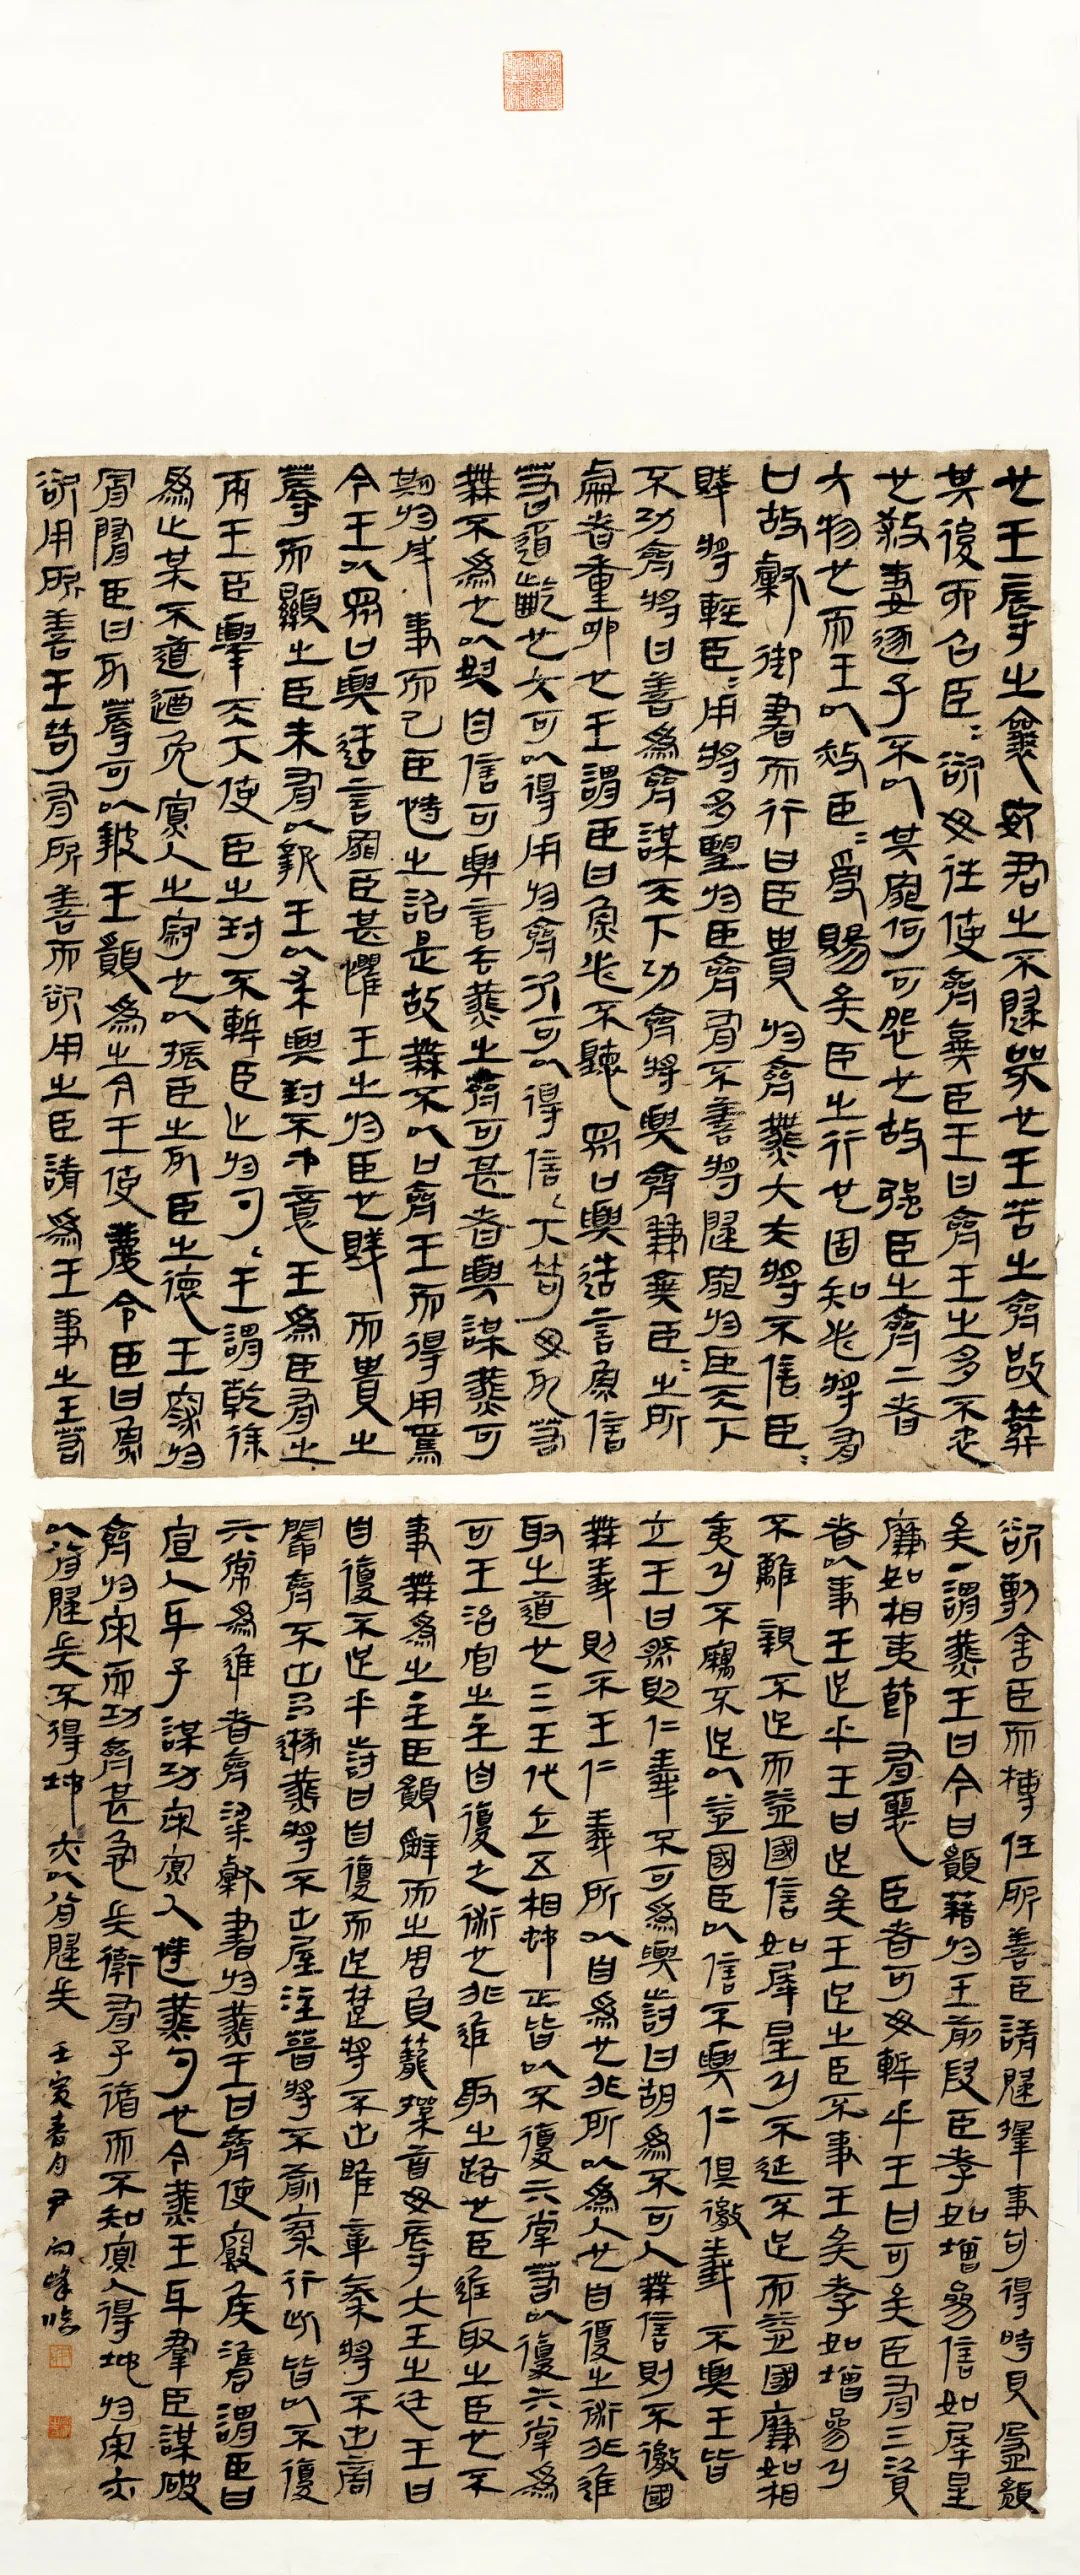 也王辱之襄安君之不歸哭也王苦之齊改葬
其後而召臣=欲毋往使齊棄臣王曰齊王之多不忠
也殺妻逐子不以其罪何可怨也故強臣之齊二者
大物也而王以赦臣=受賜矣臣之行也固知必將有
口故獻御書而行曰臣貴於齊燕大夫將不信臣=
賤將輕臣=用將多望於臣齊有不善將歸罪於臣天下
不功齊將曰善為齊謀天下功齊將與齊兼棄臣=之所
處者重卵也王謂臣曰魚必不聽眾口與造言魚信
若齕也大可以得用於齊次可以得信=下苟毋死若
無不為也以奴自信可與言去燕之齊可甚者與謀燕可
期於成事而已臣恃之詔是故無不以口齊王而得用焉
今王以眾口與造言罪臣甚懼王之於臣也賤而貴之
蓐而顯之臣未有以報王以求與封不中意王為臣有之
兩王臣舉天下使臣之封不慚臣止於勺=王謂乾徐
為止某不道逎免寡人之冠也以振臣之死臣之德王深於
骨隨臣甘死蓐可以報王願為之今王使慶令臣曰魚
欲用所善王苟有所善而欲用之臣請為王事之王若
欲剸舍臣而榑任所善臣請歸擇事句得時見盈願
矣·謂燕王曰今日願藉於王前叚臣孝如增參信如犀星
廉如相夷節有惡臣者可毋慚乎王曰可矣臣有三資
者以事王足乎王曰足矣王足之臣不事王矣孝如增參乃
不離親不足而益國信如犀星乃不延不足而益國廉如相
夷乃不竊不足以益國臣以信不與仁俱徹義不與王皆
立王曰然則仁義不可為與對曰胡為不可人無信則不徹國
無義則不王仁義所以自為也非所以為人也自復之術非進
取之道也三王代立五相蛇正皆以不復亓掌若以復亓掌為
可王治官之主自復之術也非進取之路也臣進取之臣也不
事無為之主臣願辭而之周負籠操臿毋辱大王之廷王曰
自復不足乎對曰自復而足楚將不出雎章秦將不出商
閹齊不出呂隧燕將不出屋注晉將不蘛泰行此皆以不復
亓常為進者齊梁獻書於燕王曰齊使侯濜謂臣曰
寡人與子謀功宋寡人恃燕勺也今燕王與群臣謀破
齊於宋而功齊甚急兵率有子循而不知寡人得地於宋亦
以八月歸兵不得地亦以八月歸兵 壬寅春月尹向峰臨